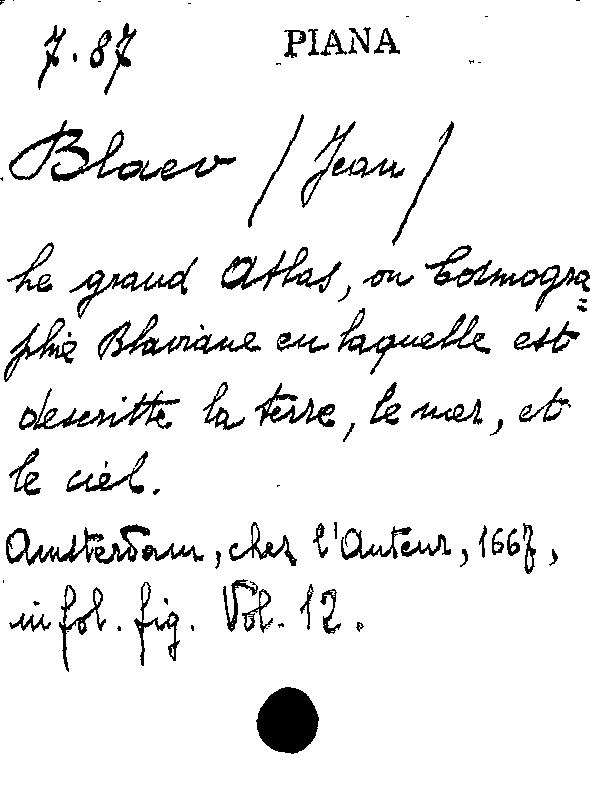 7.87 PIANA
Blaev /Jean/
Le grand Atlas, ou Cosmogra=
phie Blaviane en laquelle est
descritte la terre, le mer, et
le ciel.
Amsterdam, chez l'Auteur, 1667,
in fol. fig. Vol. 12.